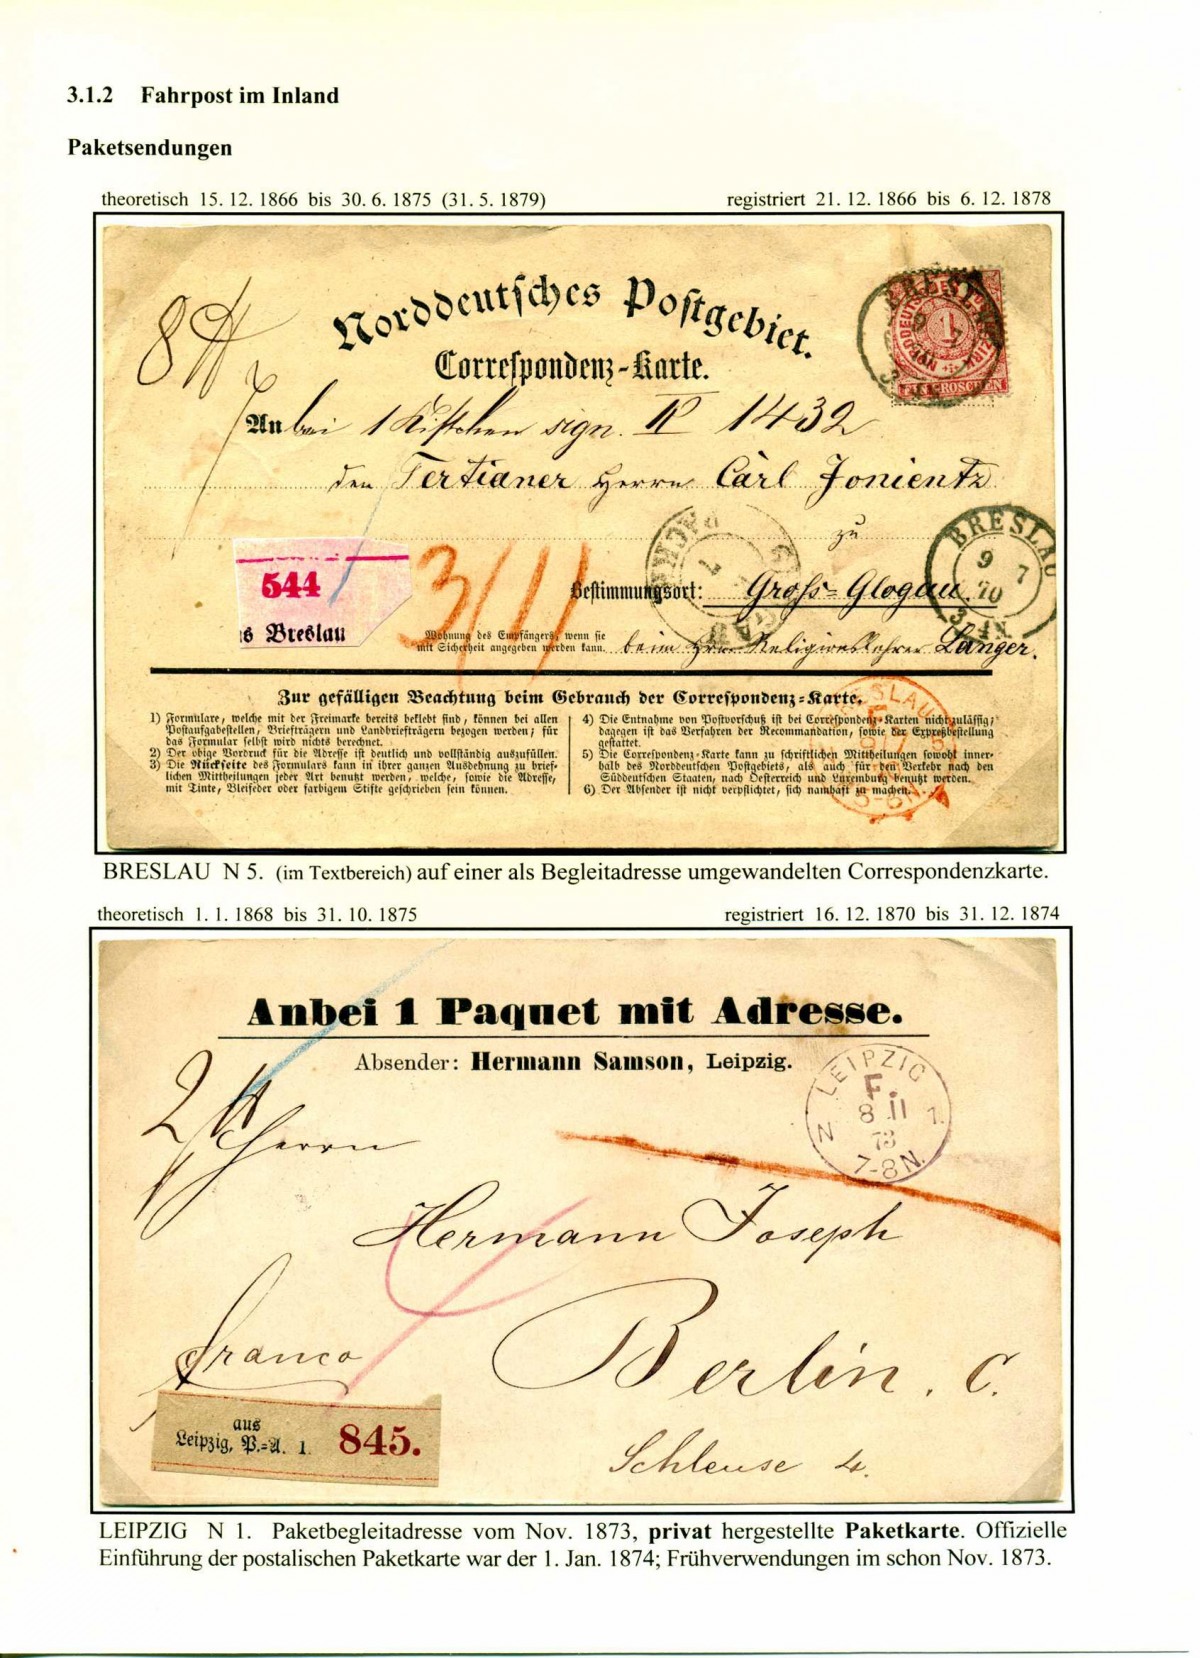 3.1.2 Fahrpost im Inland
Paketsendungen
theoretisch 15. 12. 1866 bis 30. 6. 1875 (31. 5. 1879) registriert 21. 12. 1866 bis 6. 12. 1878
Norddeutsches Postgebiet.
Correspondenz-Karte.
8
Anbei 1 Kistchen sign. 1432
den Tertianer Herrn Carl Jonientz
zu
544
Breslau
3/11
Bestimmungsort: Groß-Glogau.
Wohnung des Empfängers, wenn sie
mit Sicherheit angegeben werden kann. beim Herrn Religionslehrer Langer.
BRESLAU
9 7
70
Zur gefälligen Beachtung beim Gebrauch der Correspondenz-Karte.
1) Formulare, welche mit der Freimarke bereits beklebt sind, können bei allen
Postaufgabestellen, Briefträgern und Landbriefträgern bezogen werden; für
das Formular selbst wird nichts berechnet.
2) Der obige Vordruck für die Adresse ist deutlich und vollständig auszufüllen.
3) Die Rückseite des Formulars kann in ihrer ganzen Ausdehnung zu brief-
lichen Mittheilungen jeder Art benutzt werden, welche, sowie die Adresse,
mit Tinte, Bleifeder oder farbigem Stifte geschrieben sein können.
4) Die Entnahme von Postvorschuß ist bei Correspondenz-Karten nicht zulässig;
dagegen ist das Verfahren der Recommandation, sowie der Expreßbestellung
gestattet.
5) Die Correspondenz-Karte kann zu schriftlichen Mittheilungen sowohl inner-
halb des Norddeutschen Postgebiets, als auch für den Verkehr nach den
Süddeutschen Staaten, nach Oesterreich und Luxemburg benutzt werden.
6) Der Absender ist nicht verpflichtet, sich namhaft zu machen.
BRESLAU N 5. (im Textbereich) auf einer als Begleitadresse umgewandelten Correspondenzkarte.
theoretisch 1. 1. 1868 bis 31. 10. 1875 registriert 16. 12. 1870 bis 31. 12. 1874
Anbei 1 Paquet mit Adresse.
Absender: Hermann Samson, Leipzig.
LEIPZIG
F.
N 8 11 1.
73
7-8N.
2
Herrn
Hermann Joseph
franco
Berlin. C.
aus
Leipzig, P.-A. 1. 845.
Schleuse 4.
LEIPZIG N 1. Paketbegleitadresse vom Nov. 1873, privat hergestellte Paketkarte. Offizielle
Einführung der postalischen Paketkarte war der 1. Jan. 1874; Frühverwendungen im schon Nov. 1873.